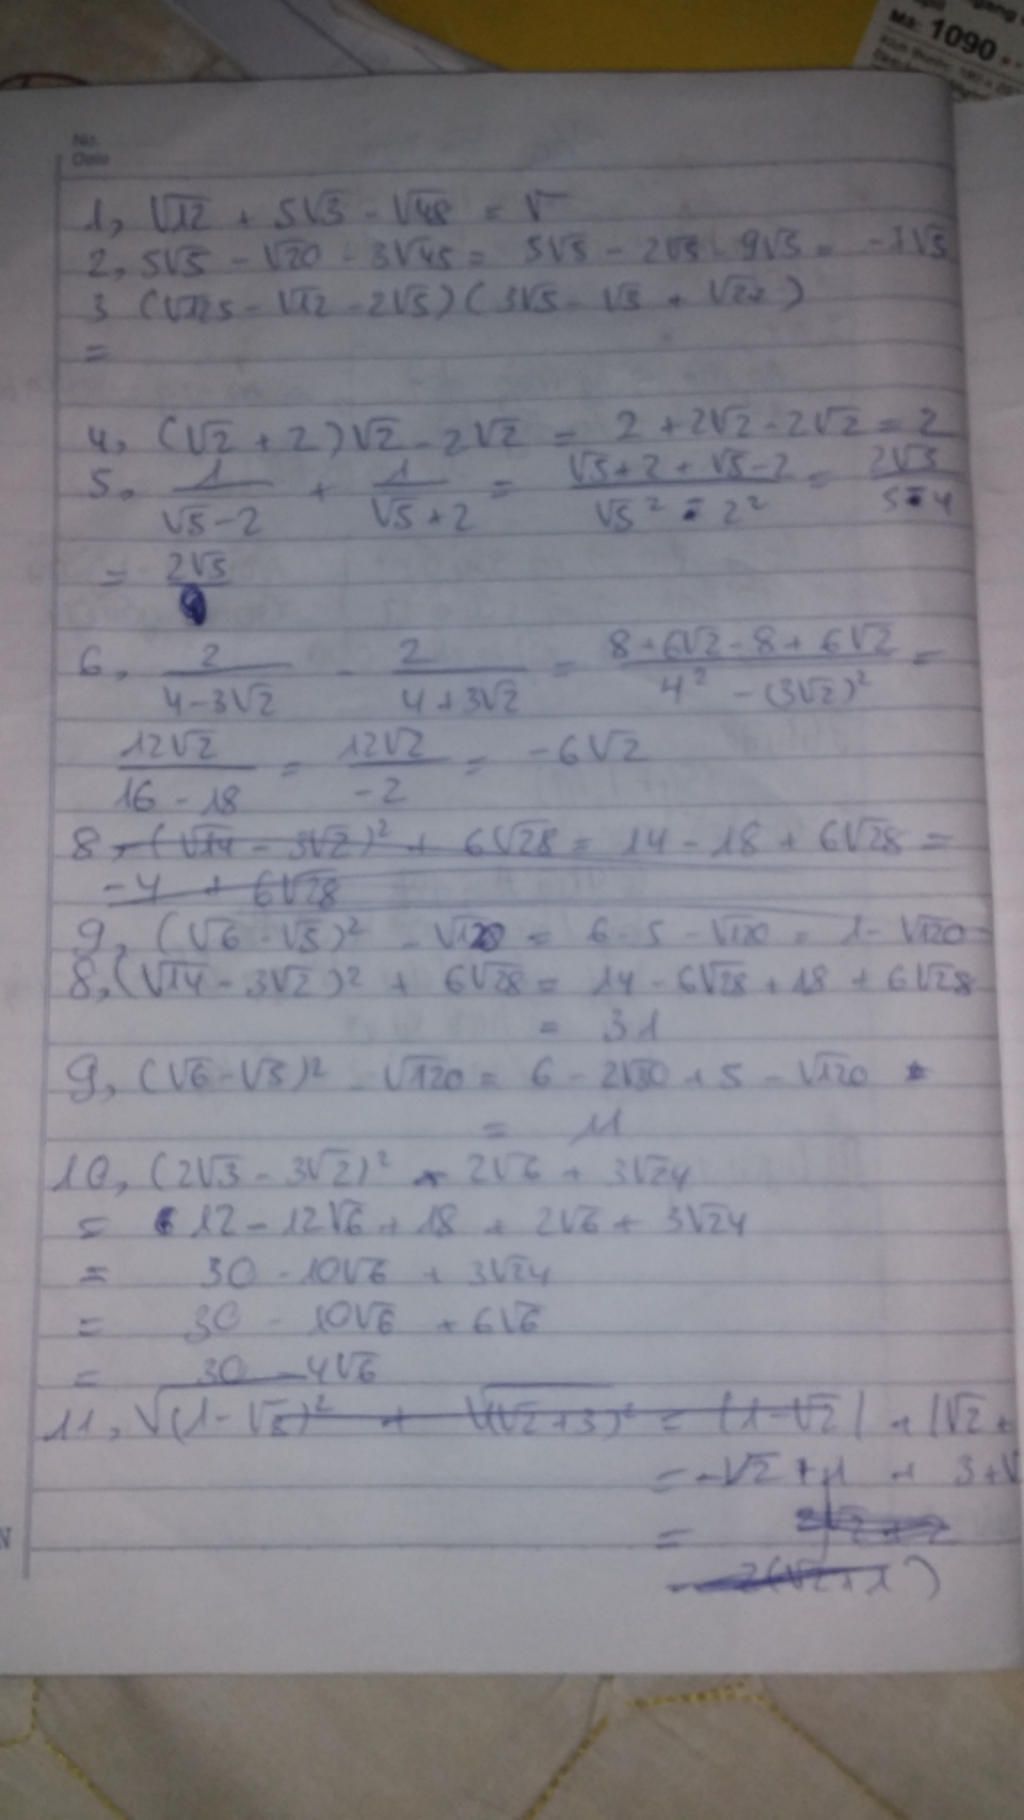 Mã: 1090
No.
Date
1, √12 + 5√3 - √48 = √
2, 5√5 - √20 - 3√45 = 5√5 - 2√5 - 9√5 =
3 (√125 - √12 - 2√5)(3√5 - √3 + √27)
=
4, (√2 + 2)√2 - 2√2 = 2 + 2√2 - 2√2 = 2
5, 1/(√5-2) + 1/(√5+2) = (√5+2+√5-2)/(√5² - 2²) = 2√5/(5-4)
= 2√5
6, 2/(4-3√2) - 2/(4+3√2) = (8+6√2-8+6√2)/(4² - (3√2)²) =
12√2/(16-18) = 12√2/-2 = -6√2
8, (√14 - 3√2)² + 6√28 = 14 - 18 + 6√28 =
-4 + 6√28
9, (√6 - √5)² - √120 = 6 - 5 - √120 = 1 - √120
8, (√14 - 3√2)² + 6√28 = 14 - 6√28 + 18 + 6√28
= 31
9, (√6 - √5)² - √120 = 6 - 2√30 + 5 - √120
= 11
10, (2√3 - 3√2)² + 2√6 + 3√24
= 12 - 12√6 + 18 + 2√6 + 3√24
= 30 - 10√6 + 3√24
= 30 - 10√6 + 6√6
= 30 - 4√6
11, √(1-√2)² + √(√2+3)² = |1-√2| + |√2+
= -√2 + 1 + 3 + √
=
2(√2+1)